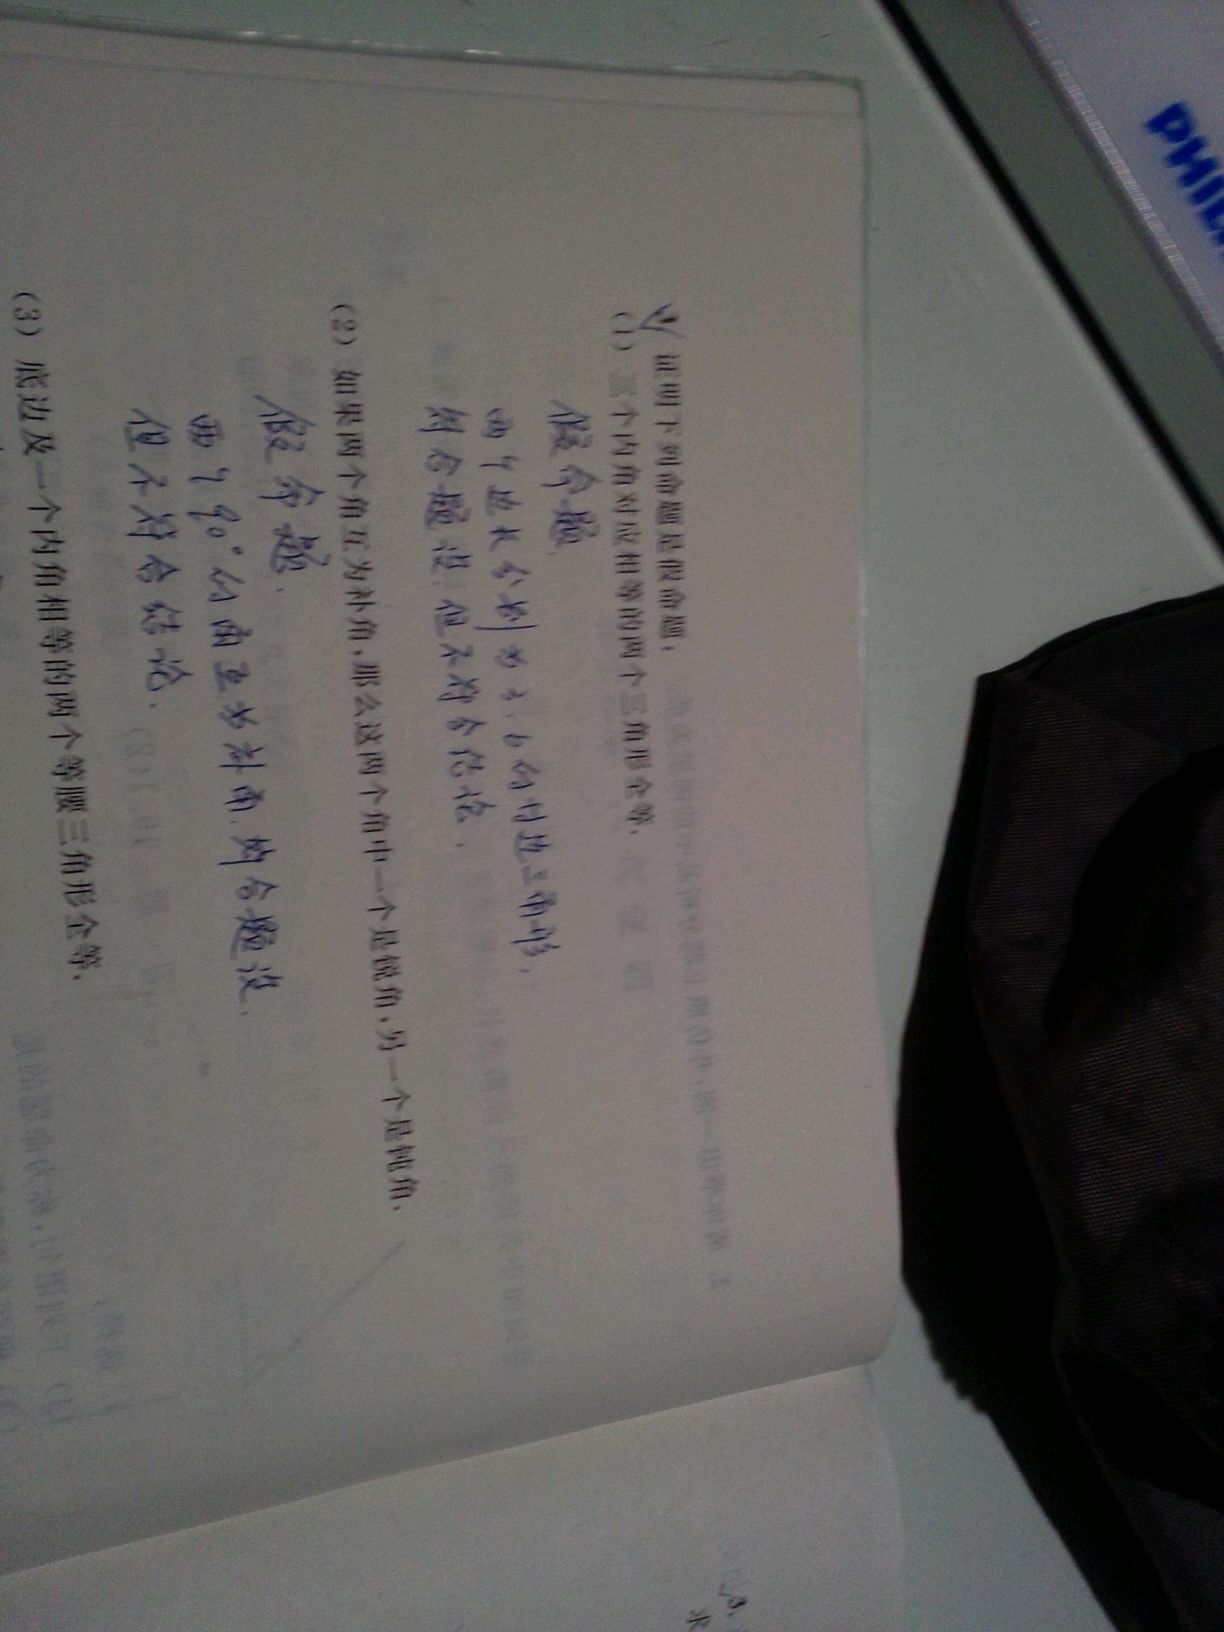 证明下列命题是假命题.
(1) 三个内角对应相等的两个三角形全等.
假命题
两个边长分别为3.6的等边三角形,
符合题设.但不符合结论.
(2) 如果两个角互为补角,那么这两个角中一个是锐角,另一个是钝角.
假命题.
两个90°的角互为补角.符合题设.
但不符合结论.
(3) 底边及一个内角相等的两个等腰三角形全等.
PHIL
求